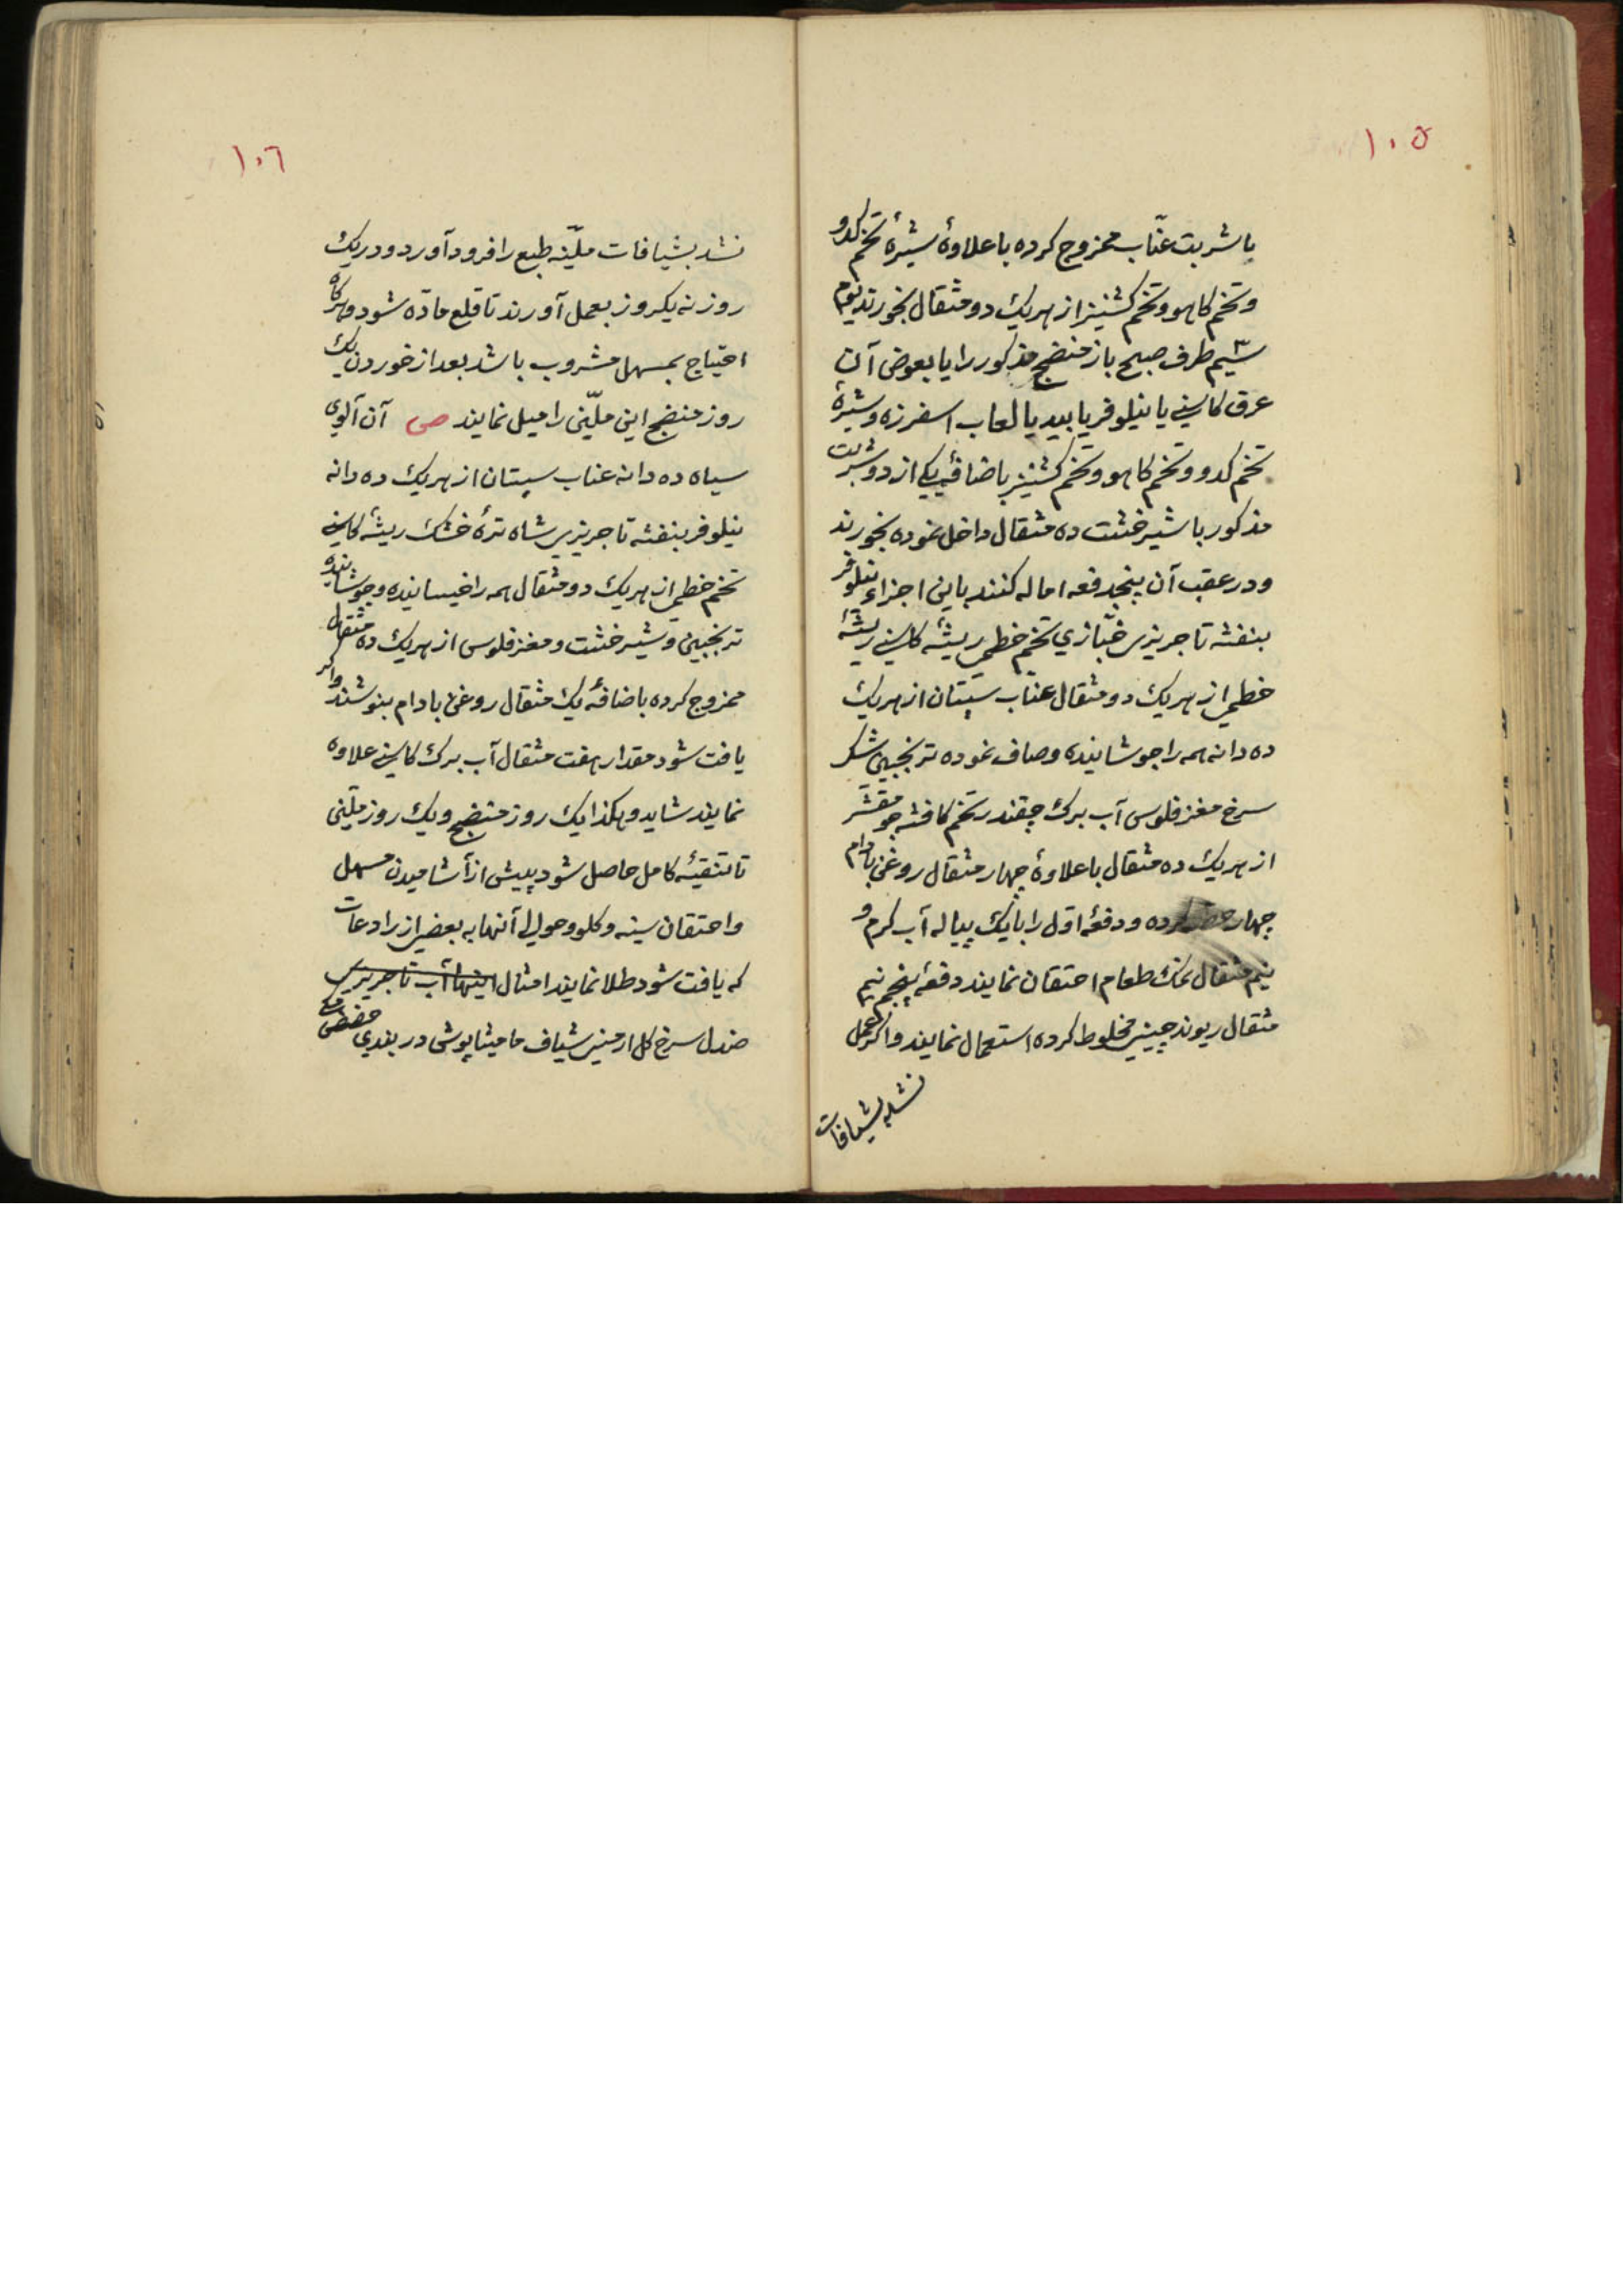 ١٠٥
با شربت عنّاب ممزوج کرده با علاوهٔ شیرهٔ تخم کدو
و تخم کاهو و تخم کشنیز از هریک دو مثقال بخورند یوم
سیّم طرف صبح باز منضج مذکور را یا بعوض آن
عرق کاسنی یا نیلوفر یا بید یا لعاب اسفرزه و شیرهٔ
تخم کدو و تخم کاهو و تخم کشنیز باضافهٔ یکی از دو شربت
مذکور با شیرخشت ده مثقال داخل نموده بخورند
و در عقب آن پنجدفعه اماله کنند باین اجزاء نیلوفر
بنفشه تاجریزی خبّازی تخم خطمی ریشه کاسنی ریشهٔ
خطمی از هریک دو مثقال عنّاب سپستان از هریک
ده دانه همه را جوشانیده و صاف نموده ترنجبین شکر
سرخ مغز فلوس آب برک چقندر تخم کافشه جو مقشّر
از هریک ده مثقال با علاوهٔ چهار مثقال روغن بادام
چهار حصّه کرده و دفعهٔ اوّل را با یک پیاله آب کرم و
نیم مثقال نمک طعام احتقان نمایند دفعهٔ پنجم نیم
مثقال ریوند چینی مخلوط کرده استعمال نمایند و اکر عمل
نشد بشیافات
١٠٦
نشد بشیافات ملیّنه طبع را فرود آورد و در یک
روز نه یکروز بعمل آورند تا قلع مادّه شود و هرکاه
احتیاج بمسهل مشروب باشد بعد از خوردن یک
روز منضج این ملیّنی را میل نمایند ص آن آلوی
سیاه ده دانه عناب سپستان از هریک ده دانه
نیلوفر بنفشه تاجریزی شاه ترهٔ خشک ریشه کاسنی
تخم خطمی از هریک دو مثقال همه را خیسانیده و جوشانیده
ترنجبین و شیرخشت و مغز فلوس از هریک ده مثقال
ممزوج کرده باضافهٔ یک مثقال روغن بادام بنوشند و اکر
یافت شود مقدار هفت مثقال آب برک کاسنی علاوه
نمایند شاید و هکذا یک روز منضج و یک روز ملیّنی
تا تنقیهٔ کامل حاصل شود پیش از آشامیدن مسهل
و احتقان سینه و کلو و حوالی آنها به بعضی از رادعات
که یافت شود طلا نمایند امثال اینها آب تاجریزی
صندل سرخ کل ارمنی شیاف مامیثا پوش دربندی حضض مکی